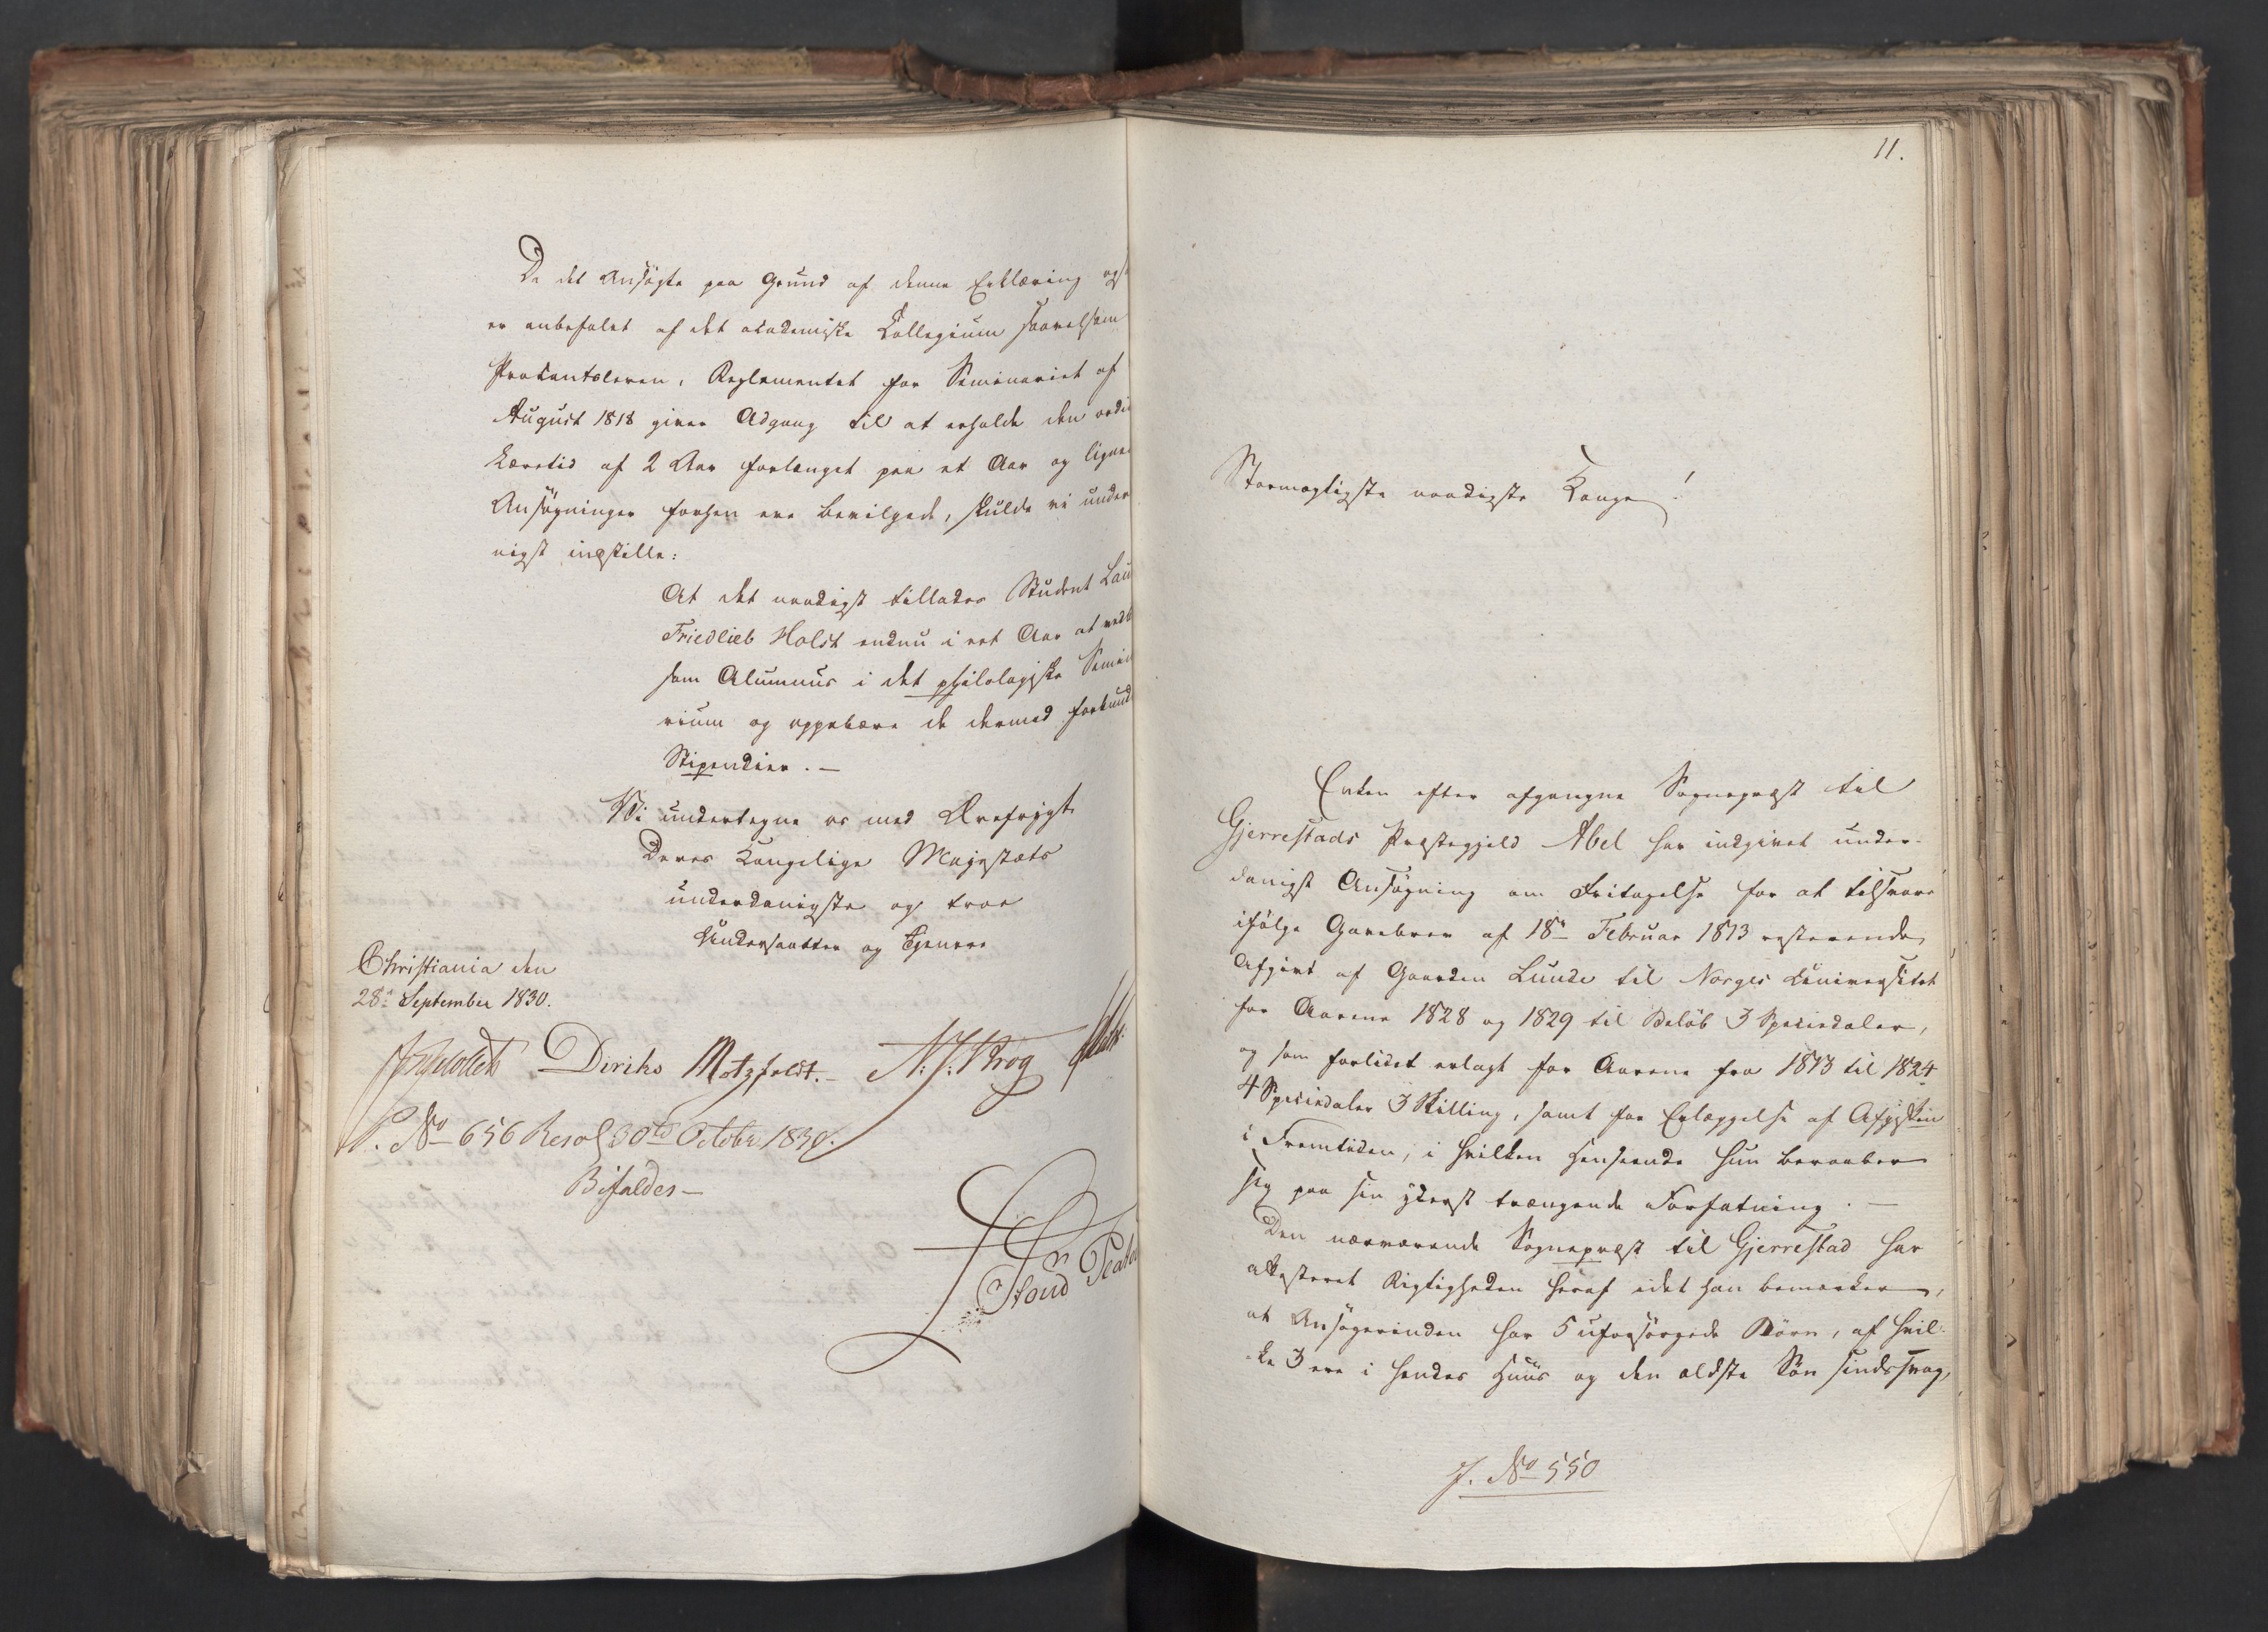 Da det Ansøgte paa Grund af denne Erklæring ogs
er anbefalet af det academiske Collegium saavelsom
Procantsleren, Reglementet for Seminariet af
August 1818 giver Adgang til at erholde den ordi
Læretid af 2 Aar forlænget paa et Aar og ligne
Ansøgninger forhen ere bevilgede, skulde vi under
nigst indstille:
At det naadigst tillades Student Lau
Friedlieb Holst endnu i eet Aar at vedb
som Alumnus i det philologiske Semin
rium og oppebære de dermed forbund
Stipendier. —
Vi undertegne os med Ærefrygt
Deres Kongelige Majestæts
underdanigste og troe
Undersaatter og Tjenere
Christiania den
28de September 1830.
Diriks Motzfeldt. N. J. Krog
P. No 656 Resol 30te October 1830.
Bifaldes —
11.
Stormægtigste naadigste Konge!
Enken efter afgangne Sognepræst til
Gjerrestads Præstegjeld Abel har indgivet under-
danigst Ansøgning om Fritagelse for at tilsvare
ifølge Gavebrev af 18de Februar 1813 resterende
Afgivt af Gaarden Lunde til Norges Universitet
for Aarene 1828 og 1829 til Beløb 3 Speciedaler,
og som forlidet erlagt for Aarene fra 1813 til 1824
4 Speciedaler 3 Skilling, samt for Erlæggelse af Afgivten
i Fremtiden, i hvilken Henseende hun beraaber
sig paa sin yderst trængende Forfatning. —
Den nærværende Sognepræst til Gjerrestad har
attesteret Rigtigheden heraf idet han bemærker,
at Ansøgerinden har 5 uforsørgede Børn, af hvil-
-ke 3 ere i hendes Huus og den ældste Søn sindssvag,
J. No 550